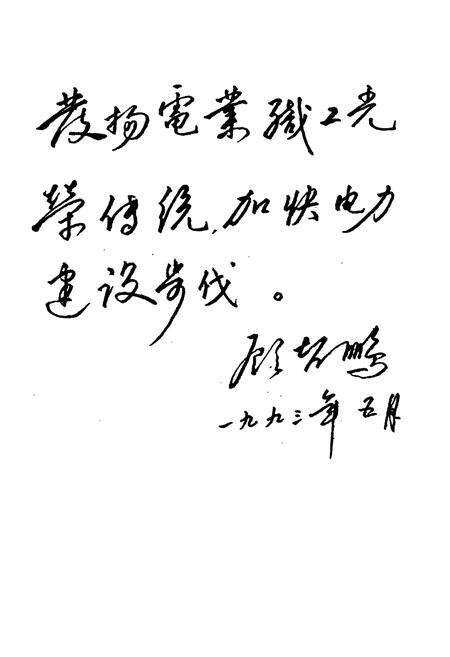 發扬電業職工光
榮傳统,加快电力
建设步伐。
顾鹏
一九九三年五月